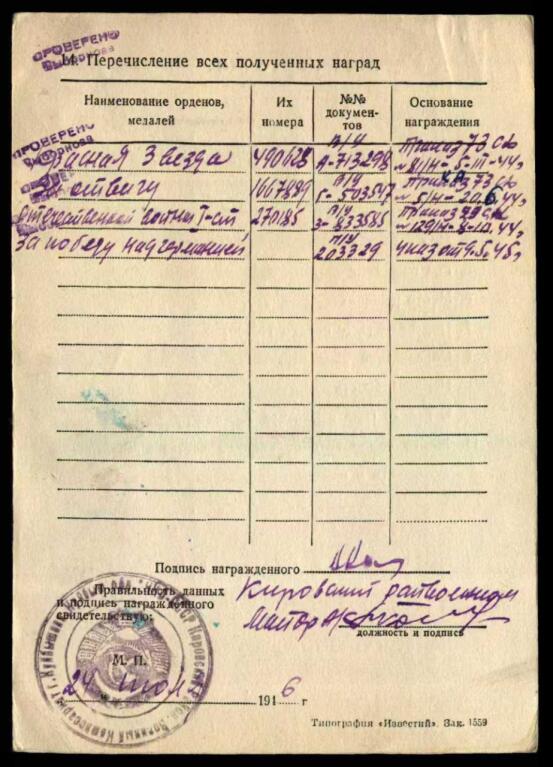 ПРОВЕРЕНО
14. Перечисление всех полученных наград
Наименование орденов,
медалей
Их
номера
№№
докумен-
тов
Основание
награждения
ПРОВЕРЕНО
Красная Звезда 490628 П/У А-713298 Приказ 73 СК № 81/Н - 5-III-44г
За отвагу 1667889 П/У Б-503547 № 5/Н- 20.6.44г
Отечественной войны I-ст 270185 П/У З-833585 Приказ 73 СК № 129/Н-8-10.44г
За победу над Германией П/У 203329 Указ от 9.5.45г
Подпись награжденного
Правильность данных
и подпись награжденного
свидетельствую:
Кировский райвоенком
Майор
должность и подпись
М. П.
24 июн 1946 г
Типография «Известий». Зак. 1559